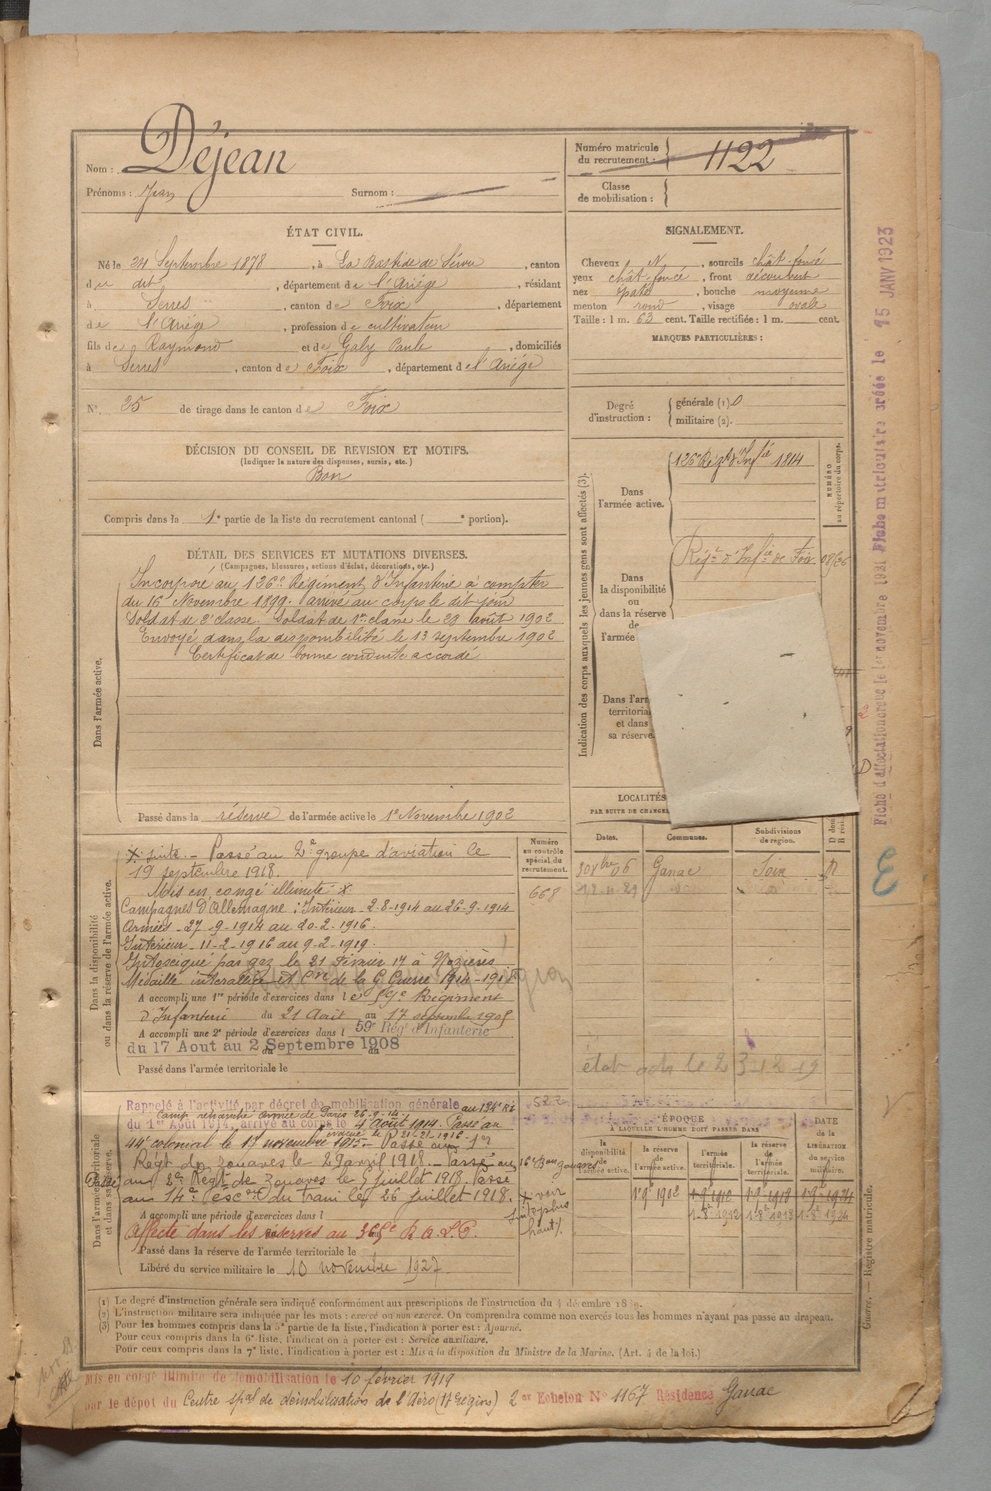 Nom : Déjean
Prénoms : Jean Surnom :
Numéro matricule du recrutement : 1122
Classe de mobilisation :
ÉTAT CIVIL.
Né le 24 Septembre 1878, à La Bastide de Sérou, canton
du dit, département de l'Ariège, résidant
à Serres, canton de Foix, département
de l'Ariège, profession de cultivateur
fils de Raymond et de Galy Paule, domiciliés
à Serres, canton de Foix, département de l'Ariège
N° 25 de tirage dans le canton de Foix
SIGNALEMENT.
Cheveux N, sourcils chât. foncé
yeux chât. foncé, front découvert
nez épaté, bouche moyenne
menton rond, visage ovale
Taille : 1 m. 63 cent. Taille rectifiée : 1 m. cent.
MARQUES PARTICULIÈRES :
Degré d'instruction : générale (1) 0
militaire (2).
DÉCISION DU CONSEIL DE REVISION ET MOTIFS.
(Indiquer la nature des dispenses, sursis, etc.)
Bon
Compris dans la 1e partie de la liste du recrutement cantonal ( e portion).
DÉTAIL DES SERVICES ET MUTATIONS DIVERSES.
(Campagnes, blessures, actions d'éclat, décorations, etc.)
Dans l'armée active.
Incorporé au 126e Régiment d'Infanterie à compter
du 16 Novembre 1899. arrivé au corps le dit jour
Soldat de 2e classe. Soldat de 1re classe le 29 août 1902
Envoyé dans la disponibilité le 13 septembre 1902
Certificat de bonne conduite accordé
Passé dans la réserve de l'armée active le 1er Novembre 1902
Indication des corps auxquels les jeunes gens sont affectés (3).
Dans l'armée active.
126 Régt d'Infie 1814
NUMÉRO au répertoire du corps.
Dans la disponibilité ou dans la réserve de l'armée
Régt d'Infie de Foix
Dans l'arm
territoria
et dans
sa réserve.
LOCALITÉS
PAR SUITE DE CHANGE
Dates. Communes. Subdivisions de région.
30 8bre 06 Ganac Foix R
Dans la disponibilité ou dans la réserve de l'armée active.
Numéro au contrôle spécial du recrutement.
668
x suite. - Passé au 2e groupe d'aviation le
19 septembre 1918.
Mis en congé illimité x
Campagnes d'Allemagne : Intérieur 2-8-1914 au 26-9-1914
Armées - 27-9-1914 au 20-2-1916.
Intérieur - 11-2-1916 au 9-2-1919.
Intoxiqué par gaz le 21 Février 17 à
Médaille interalliée et Cve de la Gde Guerre 1914-1918
A accompli une 1re période d'exercices dans le 59e Régiment
d'Infanterie du 21 Août au 17 septembre 1905
A accompli une 2e période d'exercices dans l 59e Régt d'Infanterie
du 17 Aout au 2 Septembre 1908
Passé dans l'armée territoriale le
Dans l'armée territoriale et dans sa réserve.
Rappelé à l'activité par décret de mobilisation générale
du 1er Août 1914, arrivé au corps le 4 Août 1914. Passé au
Camp retranché armée de Paris 26-9-14
44e colonial le 17 novembre 1915 - Passé au 1er
Régt de zouaves le 29 avril 1918. - Passé au
au 2e Régt de Zouaves le 5 juillet 1918. Passé
au 14e esc. du train le 26 juillet 1918.
x voir suite plus haut
A accompli une période d'exercices dans l
Affecté dans les réserves au
Passé dans la réserve de l'armée territoriale le
Libéré du service militaire le 10 novembre 1927
ÉPOQUE
A LAQUELLE L'HOMME DOIT PASSER DANS
la disponibilité de l'armée active.
la réserve de l'armée active.
l'armée territoriale.
la réserve de l'armée territoriale.
DATE de la LIBÉRATION du service militaire.
(1) Le degré d'instruction générale sera indiqué conformément aux prescriptions de l'instruction du 4 décembre 1889.
(2) L'instruction militaire sera indiquée par les mots : exercé ou non exercé. On comprendra comme non exercés tous les hommes n'ayant pas passé au drapeau.
(3) Pour les hommes compris dans la 5e partie de la liste, l'indication à porter est : Ajourné.
Pour ceux compris dans la 6e liste, l'indication à porter est : Service auxiliaire.
Pour ceux compris dans la 7e liste, l'indication à porter est : Mis à la disposition du Ministre de la Marine. (Art. 4 de la loi.)
Mis en congé illimité de démobilisation le 10 février 1919
par le dépôt du Centre spal de démobilisation de l'Aéro (St Cyr) 2 er Echelon N° 1167 Résidence Ganac
Guerre. — Registre matricule.
Fiche d'affectation reçue le 1er novembre 1921 Fiche matriculaire créée le 15 JANV 1923